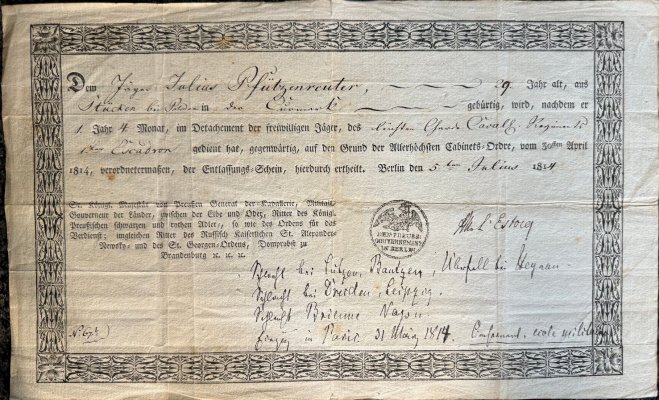 Dem Jäger Julius Pfützenreuter, 29 Jahr alt, aus
Stücken bei in der Curmark gebürtig, wird, nachdem er
1 Jahr 4 Monat, im Detachement der freiwilligen Jäger, des leichten Garde Cavall. Regiments
1ten Escadron gedient hat, gegenwärtig, auf den Grund der Allerhöchsten Cabinets-Ordre, vom 30sten April
1814, verordnetermaßen, der Entlassungs-Schein, hierdurch ertheilt. Berlin den 5ten Julius 1814
Sr. Königl. Majestät von Preußen General der Kavallerie, Militair-
Gouverneur der Länder, zwischen der Elbe und Oder, Ritter des Königl.
Preußischen schwarzen und rothen Adler-, so wie des Ordens für das
Verdienst; ungleichen Ritter des Russisch Kaiserlichen St. Alexander-
Newsky- und des St. Georgen-Ordens, Domprobst zu
Brandenburg ꝛc. ꝛc. ꝛc.
GOUVERNEMENT
IN BERLIN
L'Estocq
Schlacht bei Lützen, Bautzen, Überfall bei Heynau
Schlacht bei Dresden, Leipzig.
Schlacht Brienne
Einzug in Paris 31 März 1814. ecole militaire